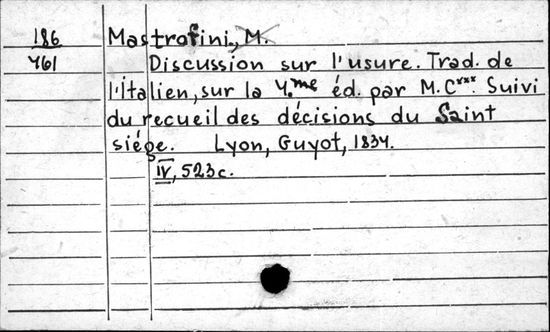 186 Mastrofini, M.
461 Discussion sur l'usure. Trad. de
l'italien, sur la 4.me éd. par M.C*** Suivi
du recueil des décisions du Saint
siége. Lyon, Guyot, 1834.
IV, 523c.